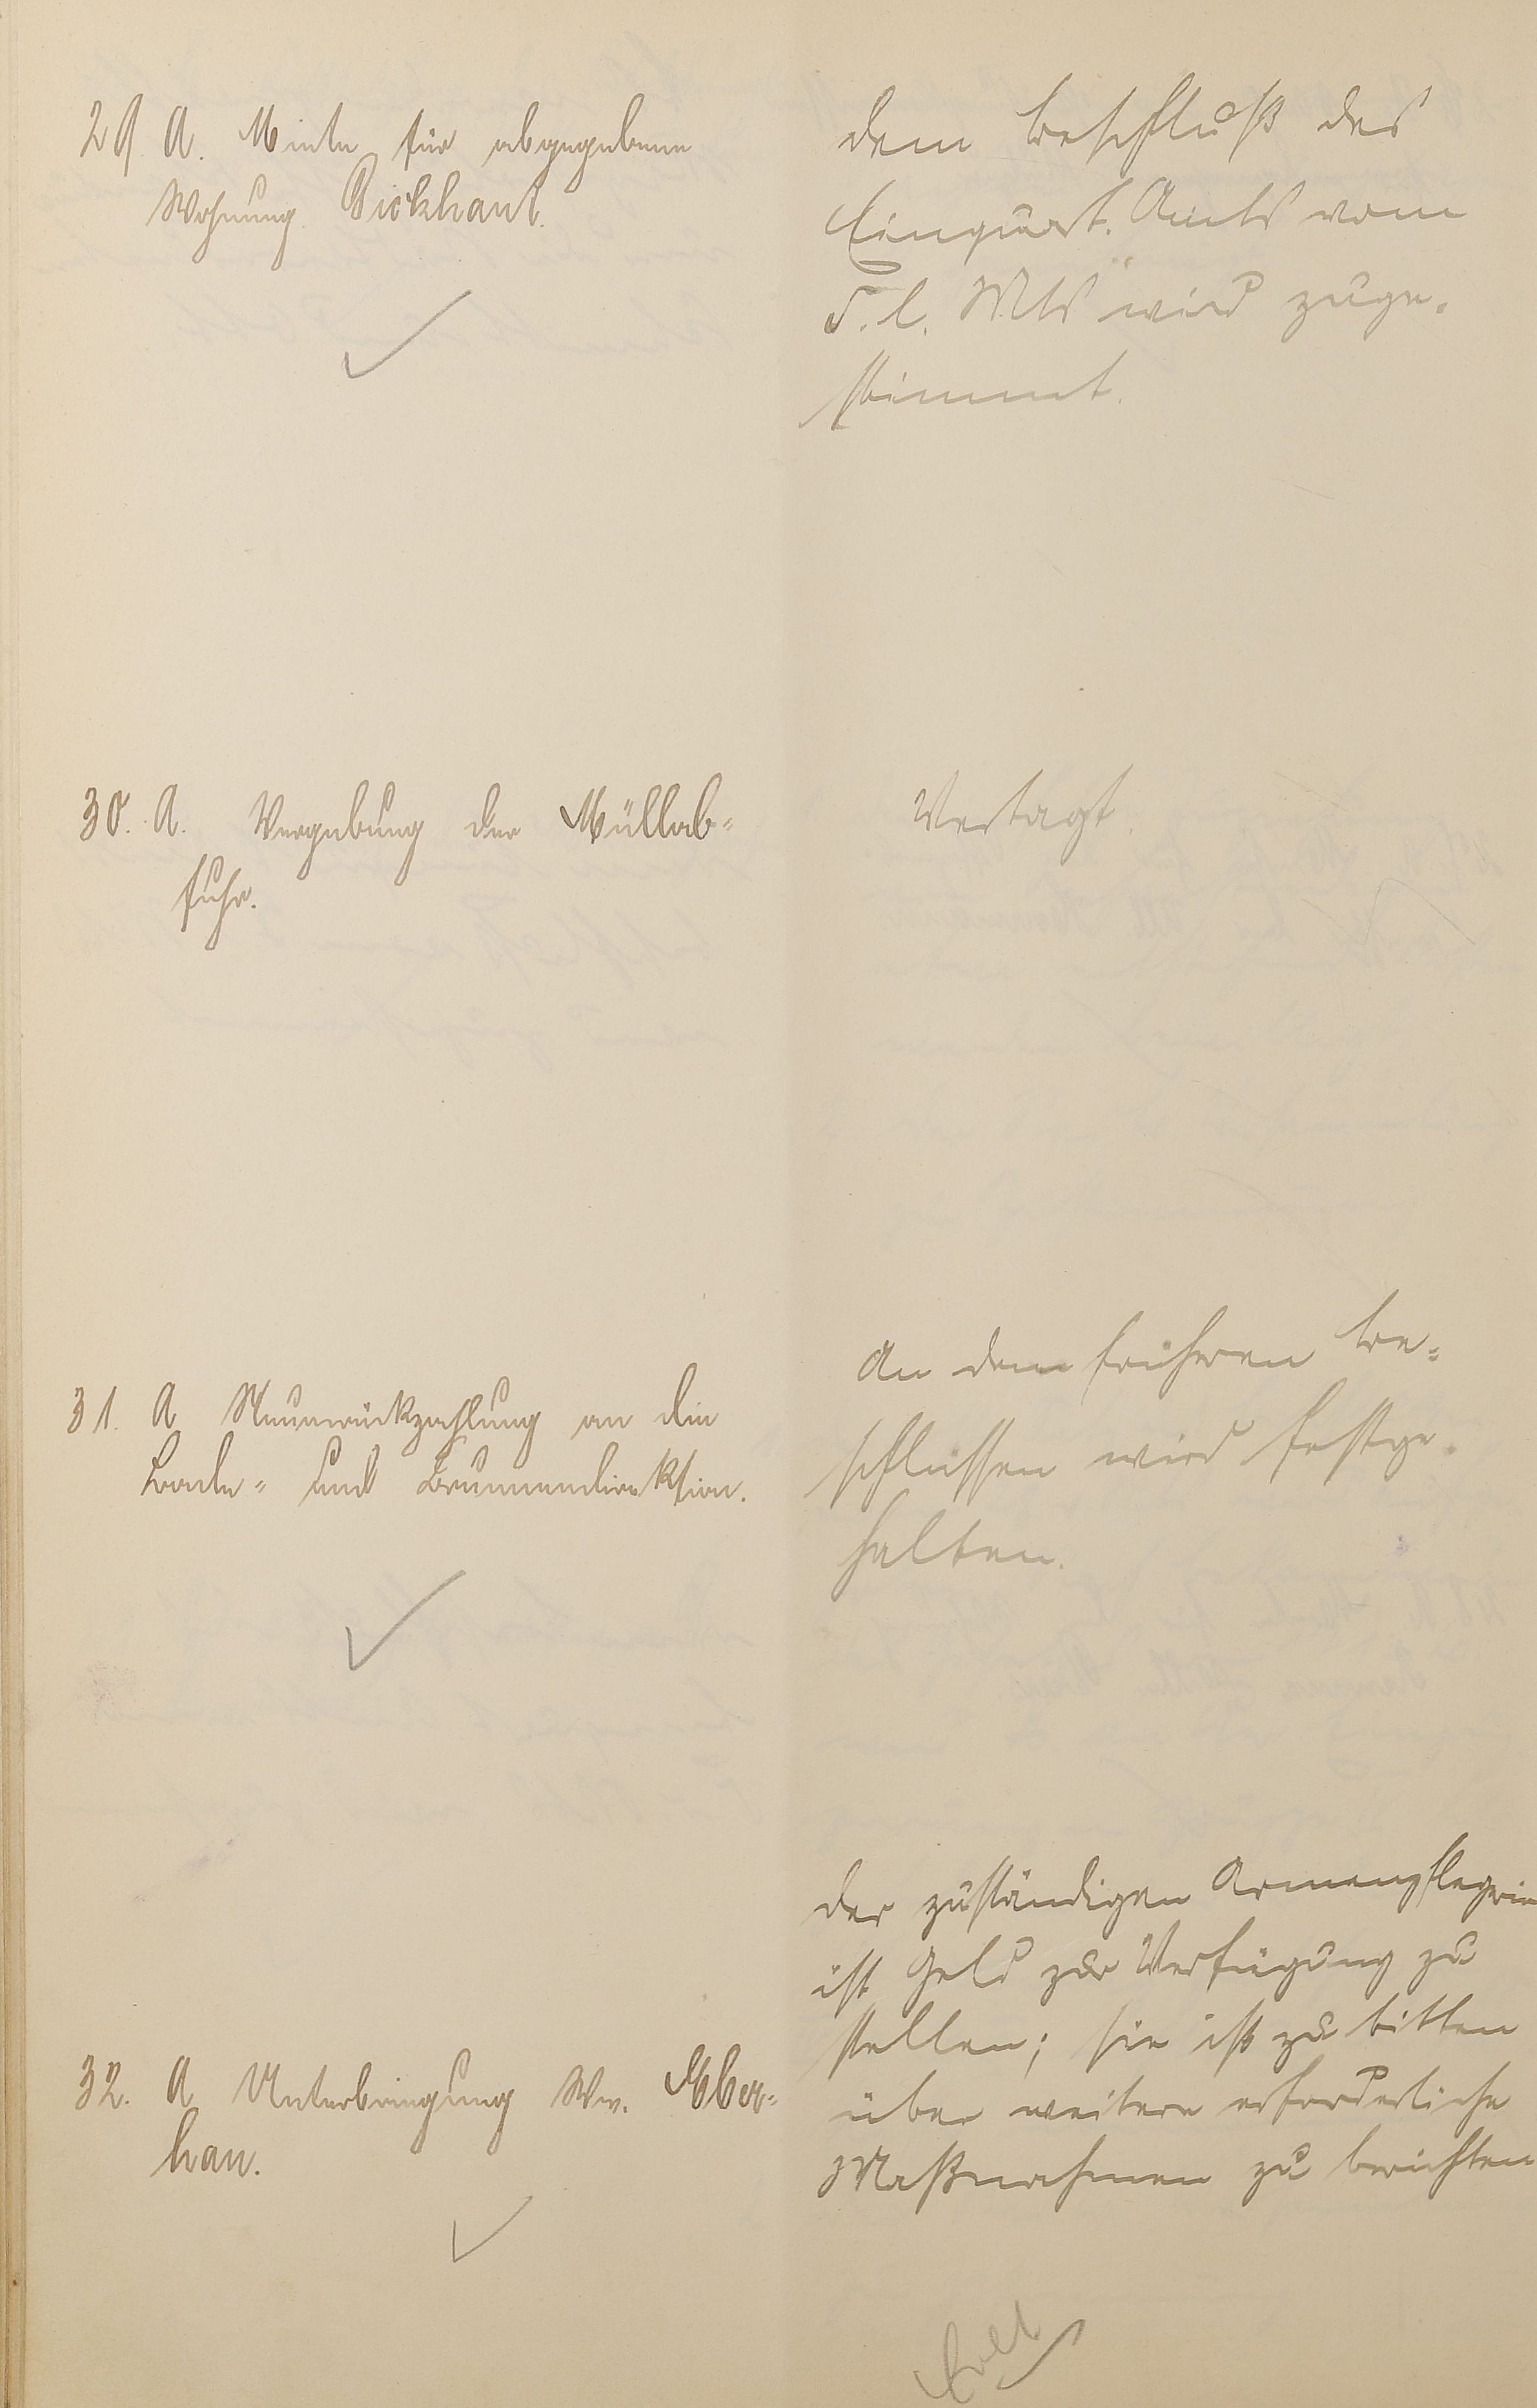 29. A. Miete für abgegebene
Wohnung Bickhard.
Dem Beschluß des
Einquart. Amts vom
5. l. Mts wird zuge-
stimmt.
30. A. Vergebung der Müllab-
fuhr.
Vertagt.
31. A Steuerrückzahlung an die
Bade- und Brunnendirektion.
An dem früheren Be-
schlussen wird festge-
halten.
32. A Unterbringung Ww. Aber-
han.
Der zuständigen Armenpflegerin
ist Geld zur Verfügung zu
stellen; sie ist zu bitten
über weitere erforderliche
Maßnahmen zu berichten